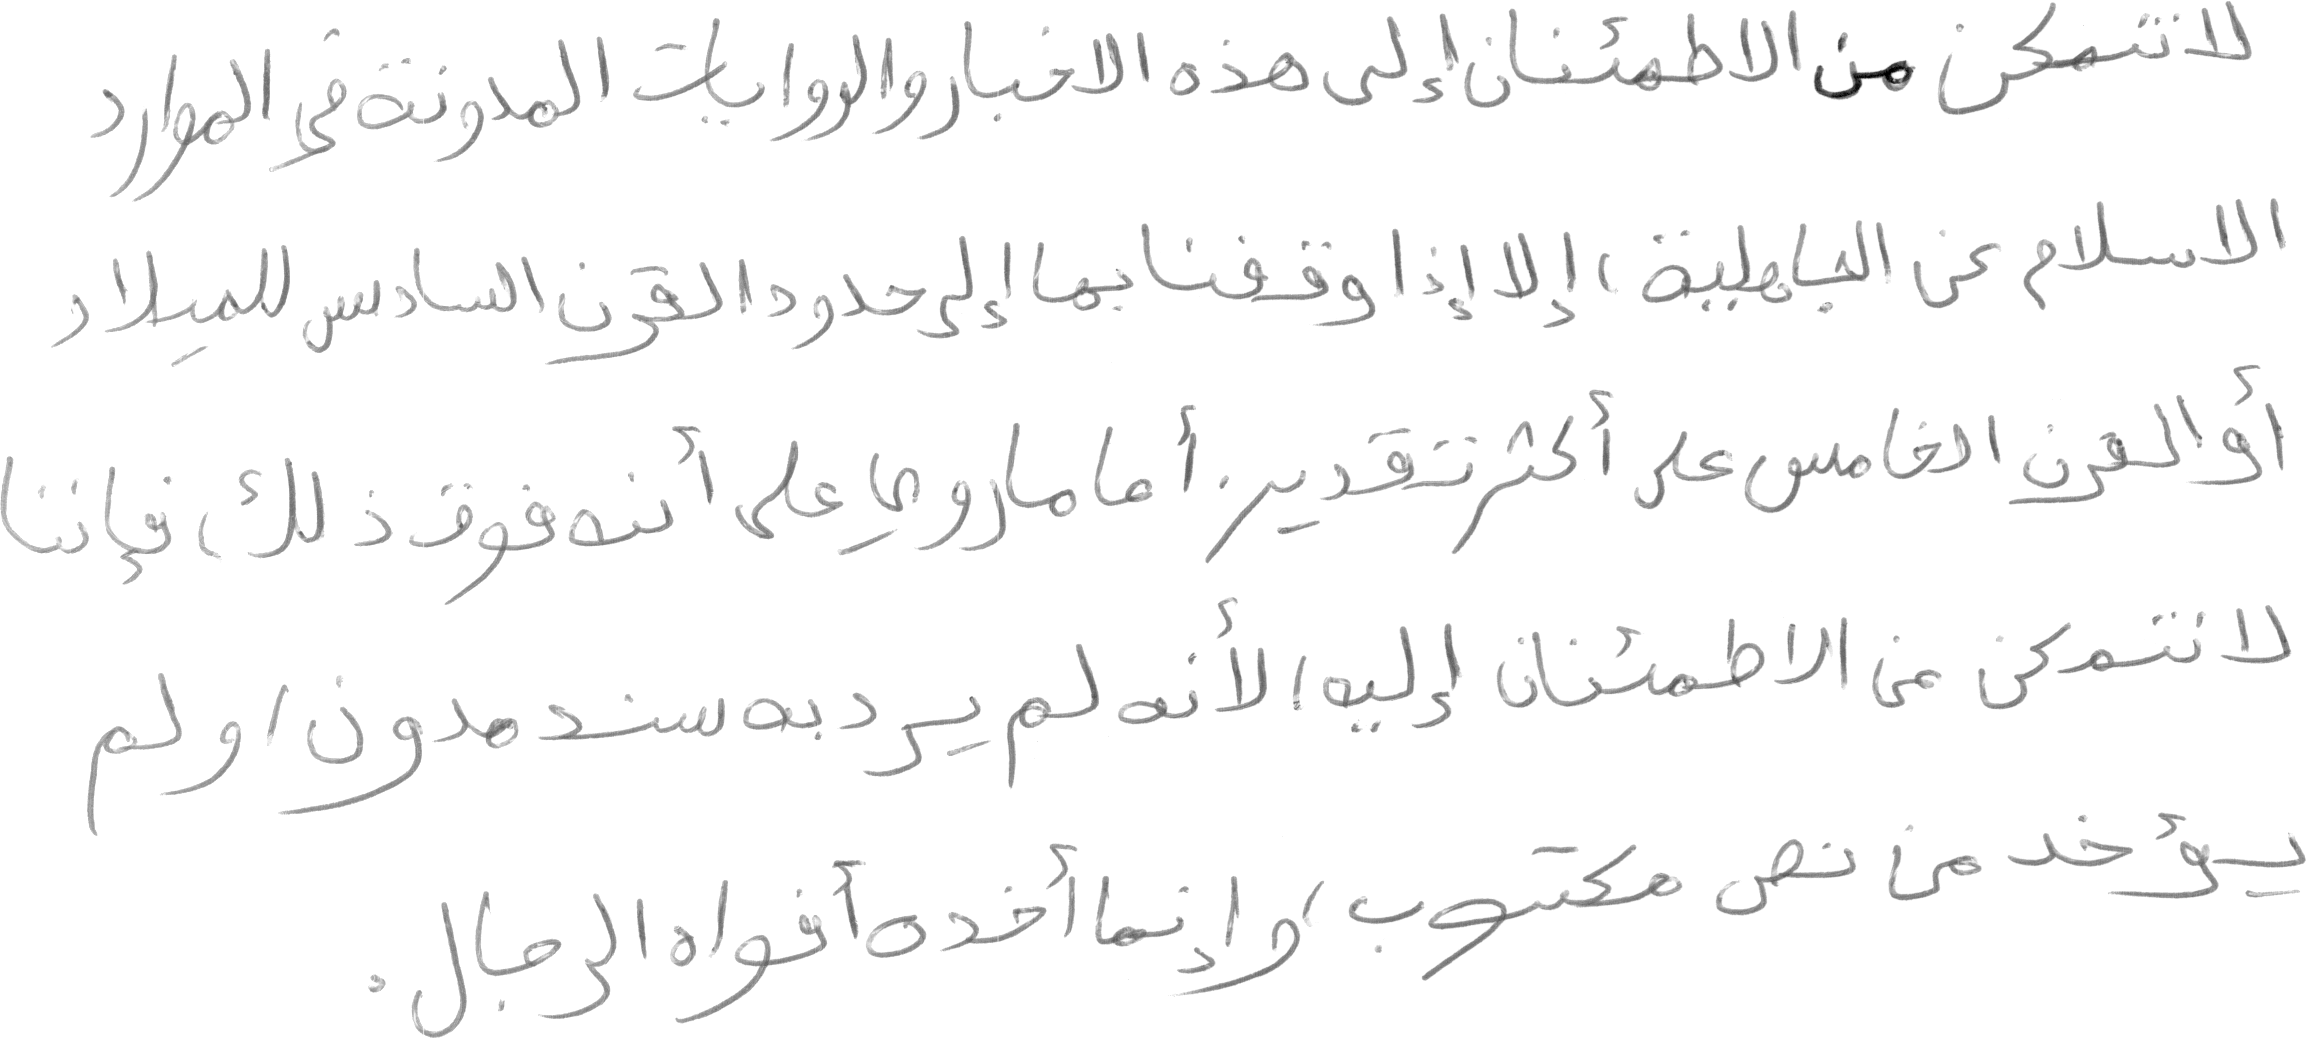 لا نتمكن من الاطمئنان إلى هذه الاخبار والروايات المدونة في الموارد
الاسلام عن الجاهلية، إلا إذا وقفنا بها إلى حدود القرن السادس للميلاد
أو القرن الخامس على أكثر تقدير. أما ما روي على أنه فوق ذلك، فإننا
لا نتمكن من الاطمئنان إليه، لأنه لم يرد به سند مدون، ولم
يؤخد من نص مكتوب، وإنما أخده أفواه الرجال.